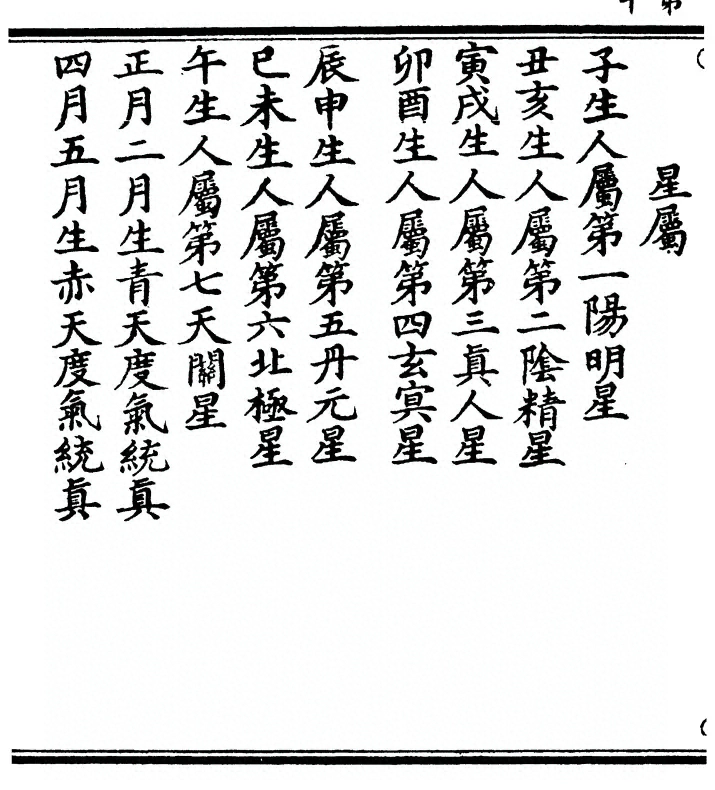 星屬
子生人屬第一陽明星
丑亥生人屬第二陰精星
寅戌生人屬第三真人星
卯酉生人屬第四玄冥星
辰申生人屬第五丹元星
巳未生人屬第六北極星
午生人屬第七天關星
正月二月生青天度氣統真
四月五月生赤天度氣統真